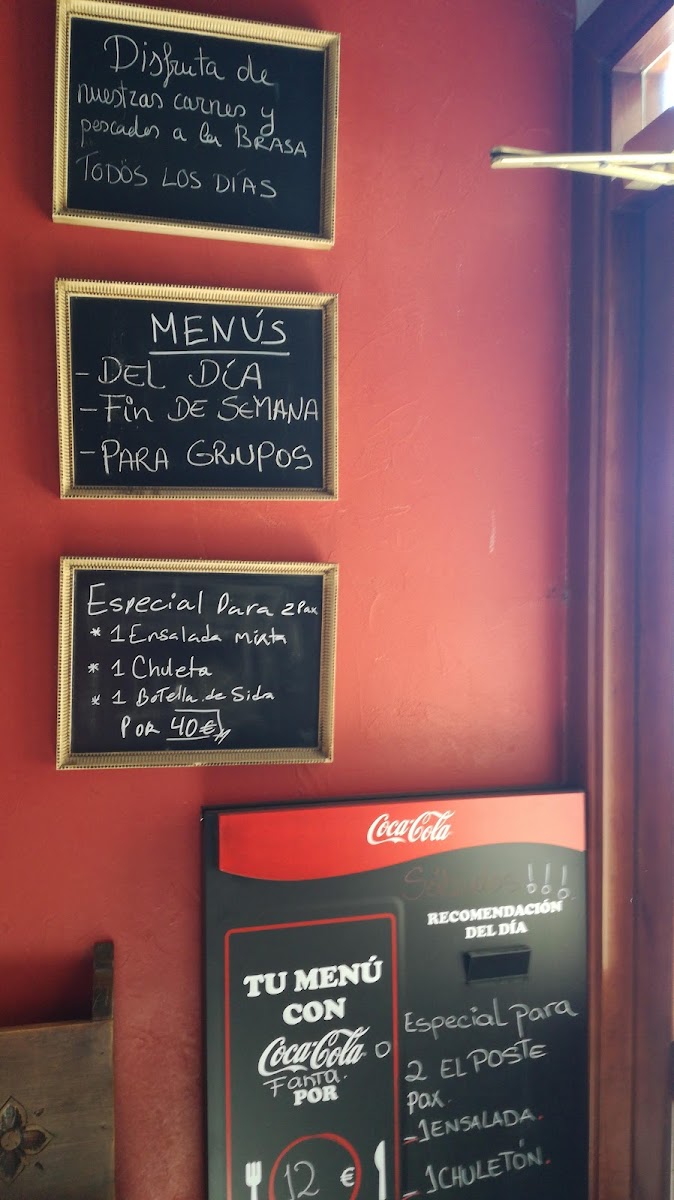 Disfruta de
nuestras carnes y
pescados a la BRASA
TODOS LOS DÍAS
MENÚS
- DEL DÍA
- Fin DE SEMANA
- PARA GRUPOS
Especial Para 2 Pax
* 1 Ensalada mixta
* 1 Chuleta
* 1 Botella de Sidra
POR 40€
Coca-Cola
!!!
RECOMENDACIÓN
DEL DÍA
TU MENÚ
CON
Coca-Cola o
Fanta.
POR
12 €
Especial para
2 EL POSTE
pax.
- 1 ENSALADA.
- 1 CHULETÓN.